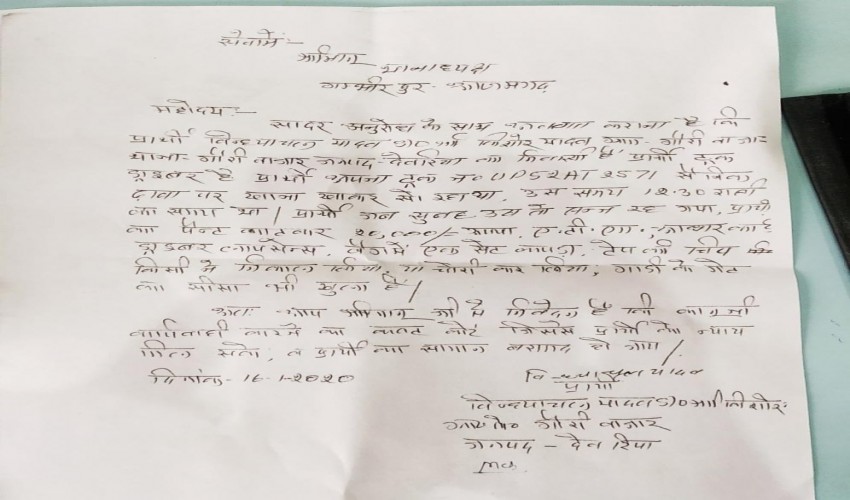 सेवामें:-
श्रीमान्
थानाध्यक्ष
गम्भीरपुर - आजमगढ़
महोदय:-
सादर अनुरोध के साथ अवगत कराना है कि
प्रार्थी विन्ध्याचल यादव S/O श्री किशोर यादव ग्राम गौरी बाजार
थाना- गौरी बाजार जनपद देवरिया का निवासी है प्रार्थी ट्रक
ड्राइबर है प्रार्थी अपना ट्रक न० UP52AT 2571 से
ढाबा पर खाना खाकर सो रहा था, उस समय 12:30 रात्री
का समय था / प्रार्थी जब सुबह उठा तो रह गया, प्रार्थी
का पैन्ट काटकर 20,000/- रूपया, ए.टी.एम., आधार कार्ड
ड्राइबर लाइसेन्स, बैगमें एक सेट कपड़ा, टेप की चिप
किसी ने निकाल लिया, या चोरी कर लिया, गाडी के गेट
का सीसा भी खुला है /
अतः आप श्रीमान् जी से निवेदन है कि कानूनी
कार्यवाही करने का कष्ट करें जिससे प्रार्थी को न्याय
मिल सके, व प्रार्थी का सामान बरामद हो जाय /
दिनांक- 16-1-2020
विन्ध्याचल यादव
प्रार्थी
विन्ध्याचल यादव S/O श्री किशोर
गौरी बाजार
जनपद - देवरिया